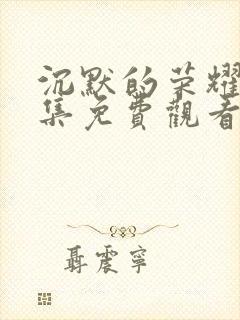 沉默的荣耀
集免費觀看
聶震寧